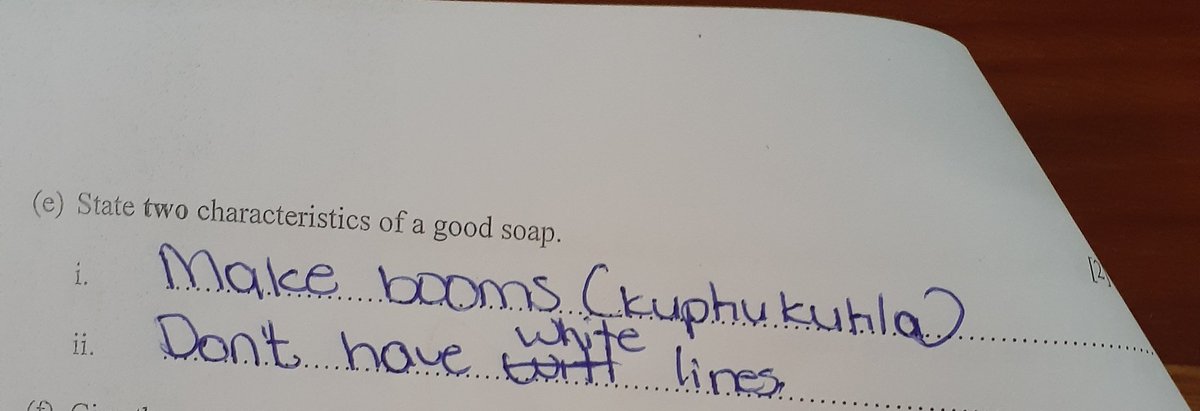 (e) State two characteristics of a good soap.
[2]
i. Make booms (kuphukuhla)
ii. Don't have white lines.